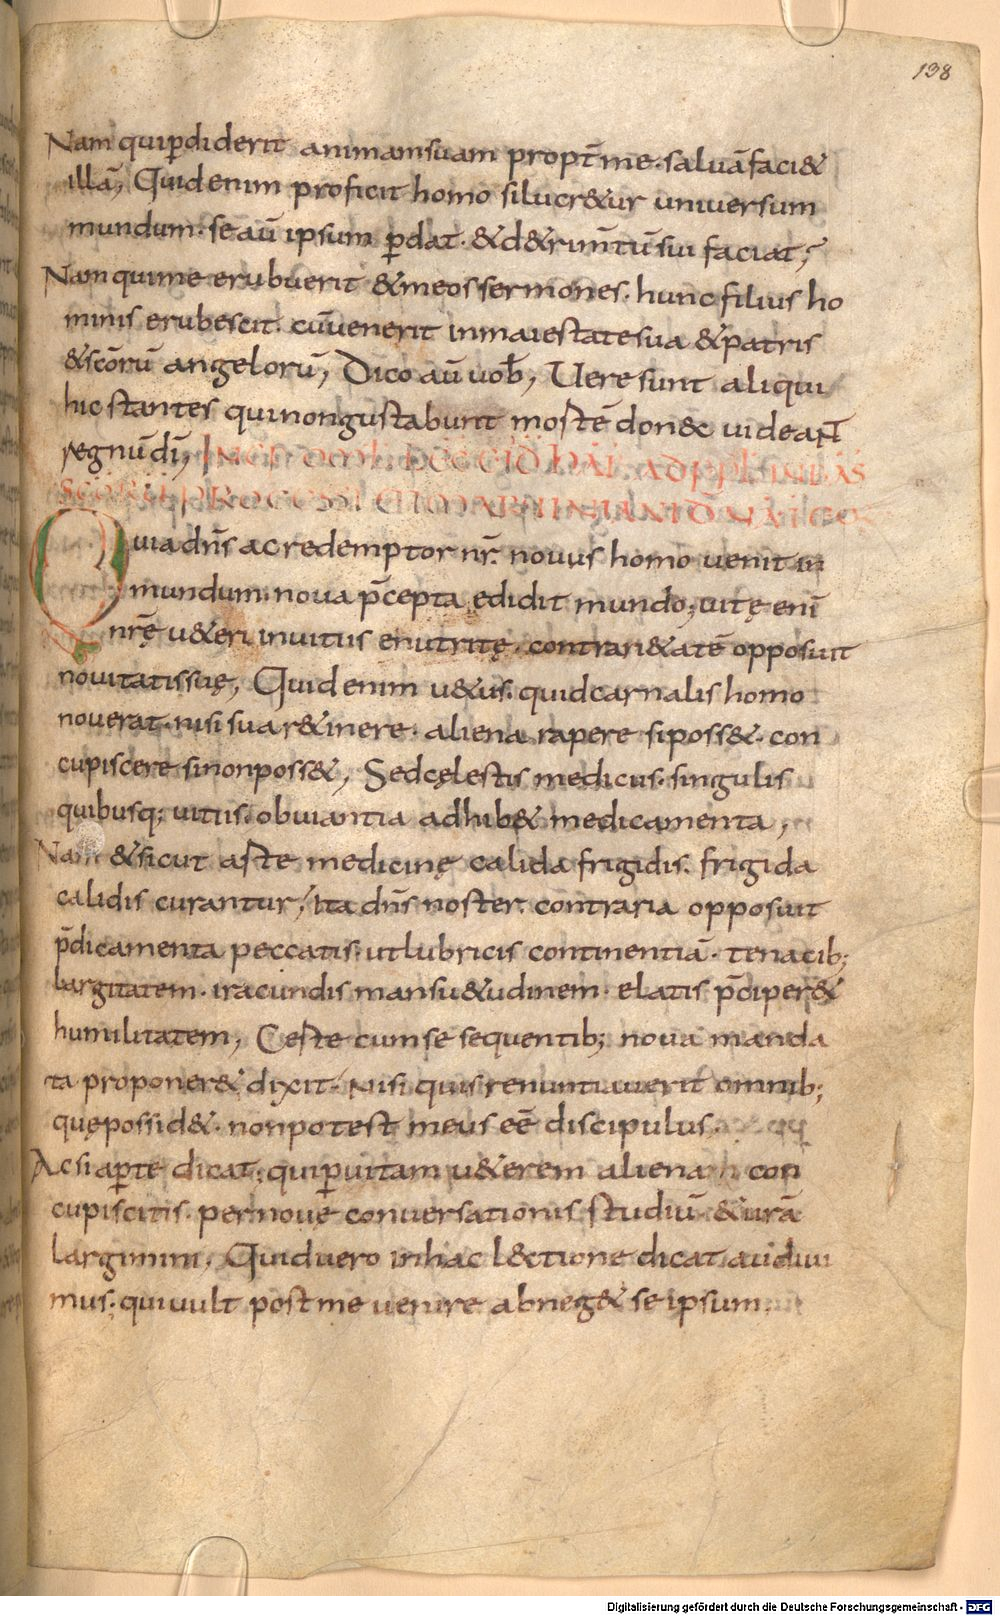 138
Nam qui p̄diderit animam suam propt̄ me · saluā faci&
illā, Quid enim proficit homo si lucr&ur uniuersum
mundum · se aū ipsum p̄dat · & d&rim̄tū sui faciat;
Nam qui me erubuerit & meos sermones · hunc filius ho
minis erubescit · cū uenerit in maiestate sua & patris
& sc̄orū angelorū, Dico aū uob̄, Uere sunt aliqui
hic stantes qui non gustabunt mortē donec uideant
regnū dī,
Quia dn̄s ac redemptor nr̄ · nouus homo uenit in
mundum · noua p̄cepta edidit mundo; uitę enī
nr̄ę u&eri in uitiis enutritę · contrari&atē opposuit
nouitatis suę, Quid enim u&us · quid carnalis homo
nouerat · nisi sua r&inere · aliena rapere si poss& · con
cupiscere si non poss&, Sed cęlestis medicus · singulis
quibusq; uitiis · obuiantia adhib& medicamenta,
Nam & sicut arte medicinę calida frigidis · frigida
calidis curantur, Ita dn̄s noster · contraria opposuit
p̄dicamenta peccatis · ut lubricis continentiā · tenacib;
largitatem · iracundis mansu&udinem · elatis p̄ciper&
humilitatem, Certe cum se sequentib; noua manda
ta proponer& dixit · Nisi quis renuntiauerit omnib;
quę possid& · non potest meus eē discipulus
Ac si ap̄te dicat; qui p̄ uitam u&erem aliena con
cupiscitis · per nouę conuersationis studiū & ur̄ā
largimini, Quid uero in hac lectione dicat audiui
mus · qui uult post me uenire abneg& se ipsum
Digitalisierung gefördert durch die Deutsche Forschungsgemeinschaft - DFG